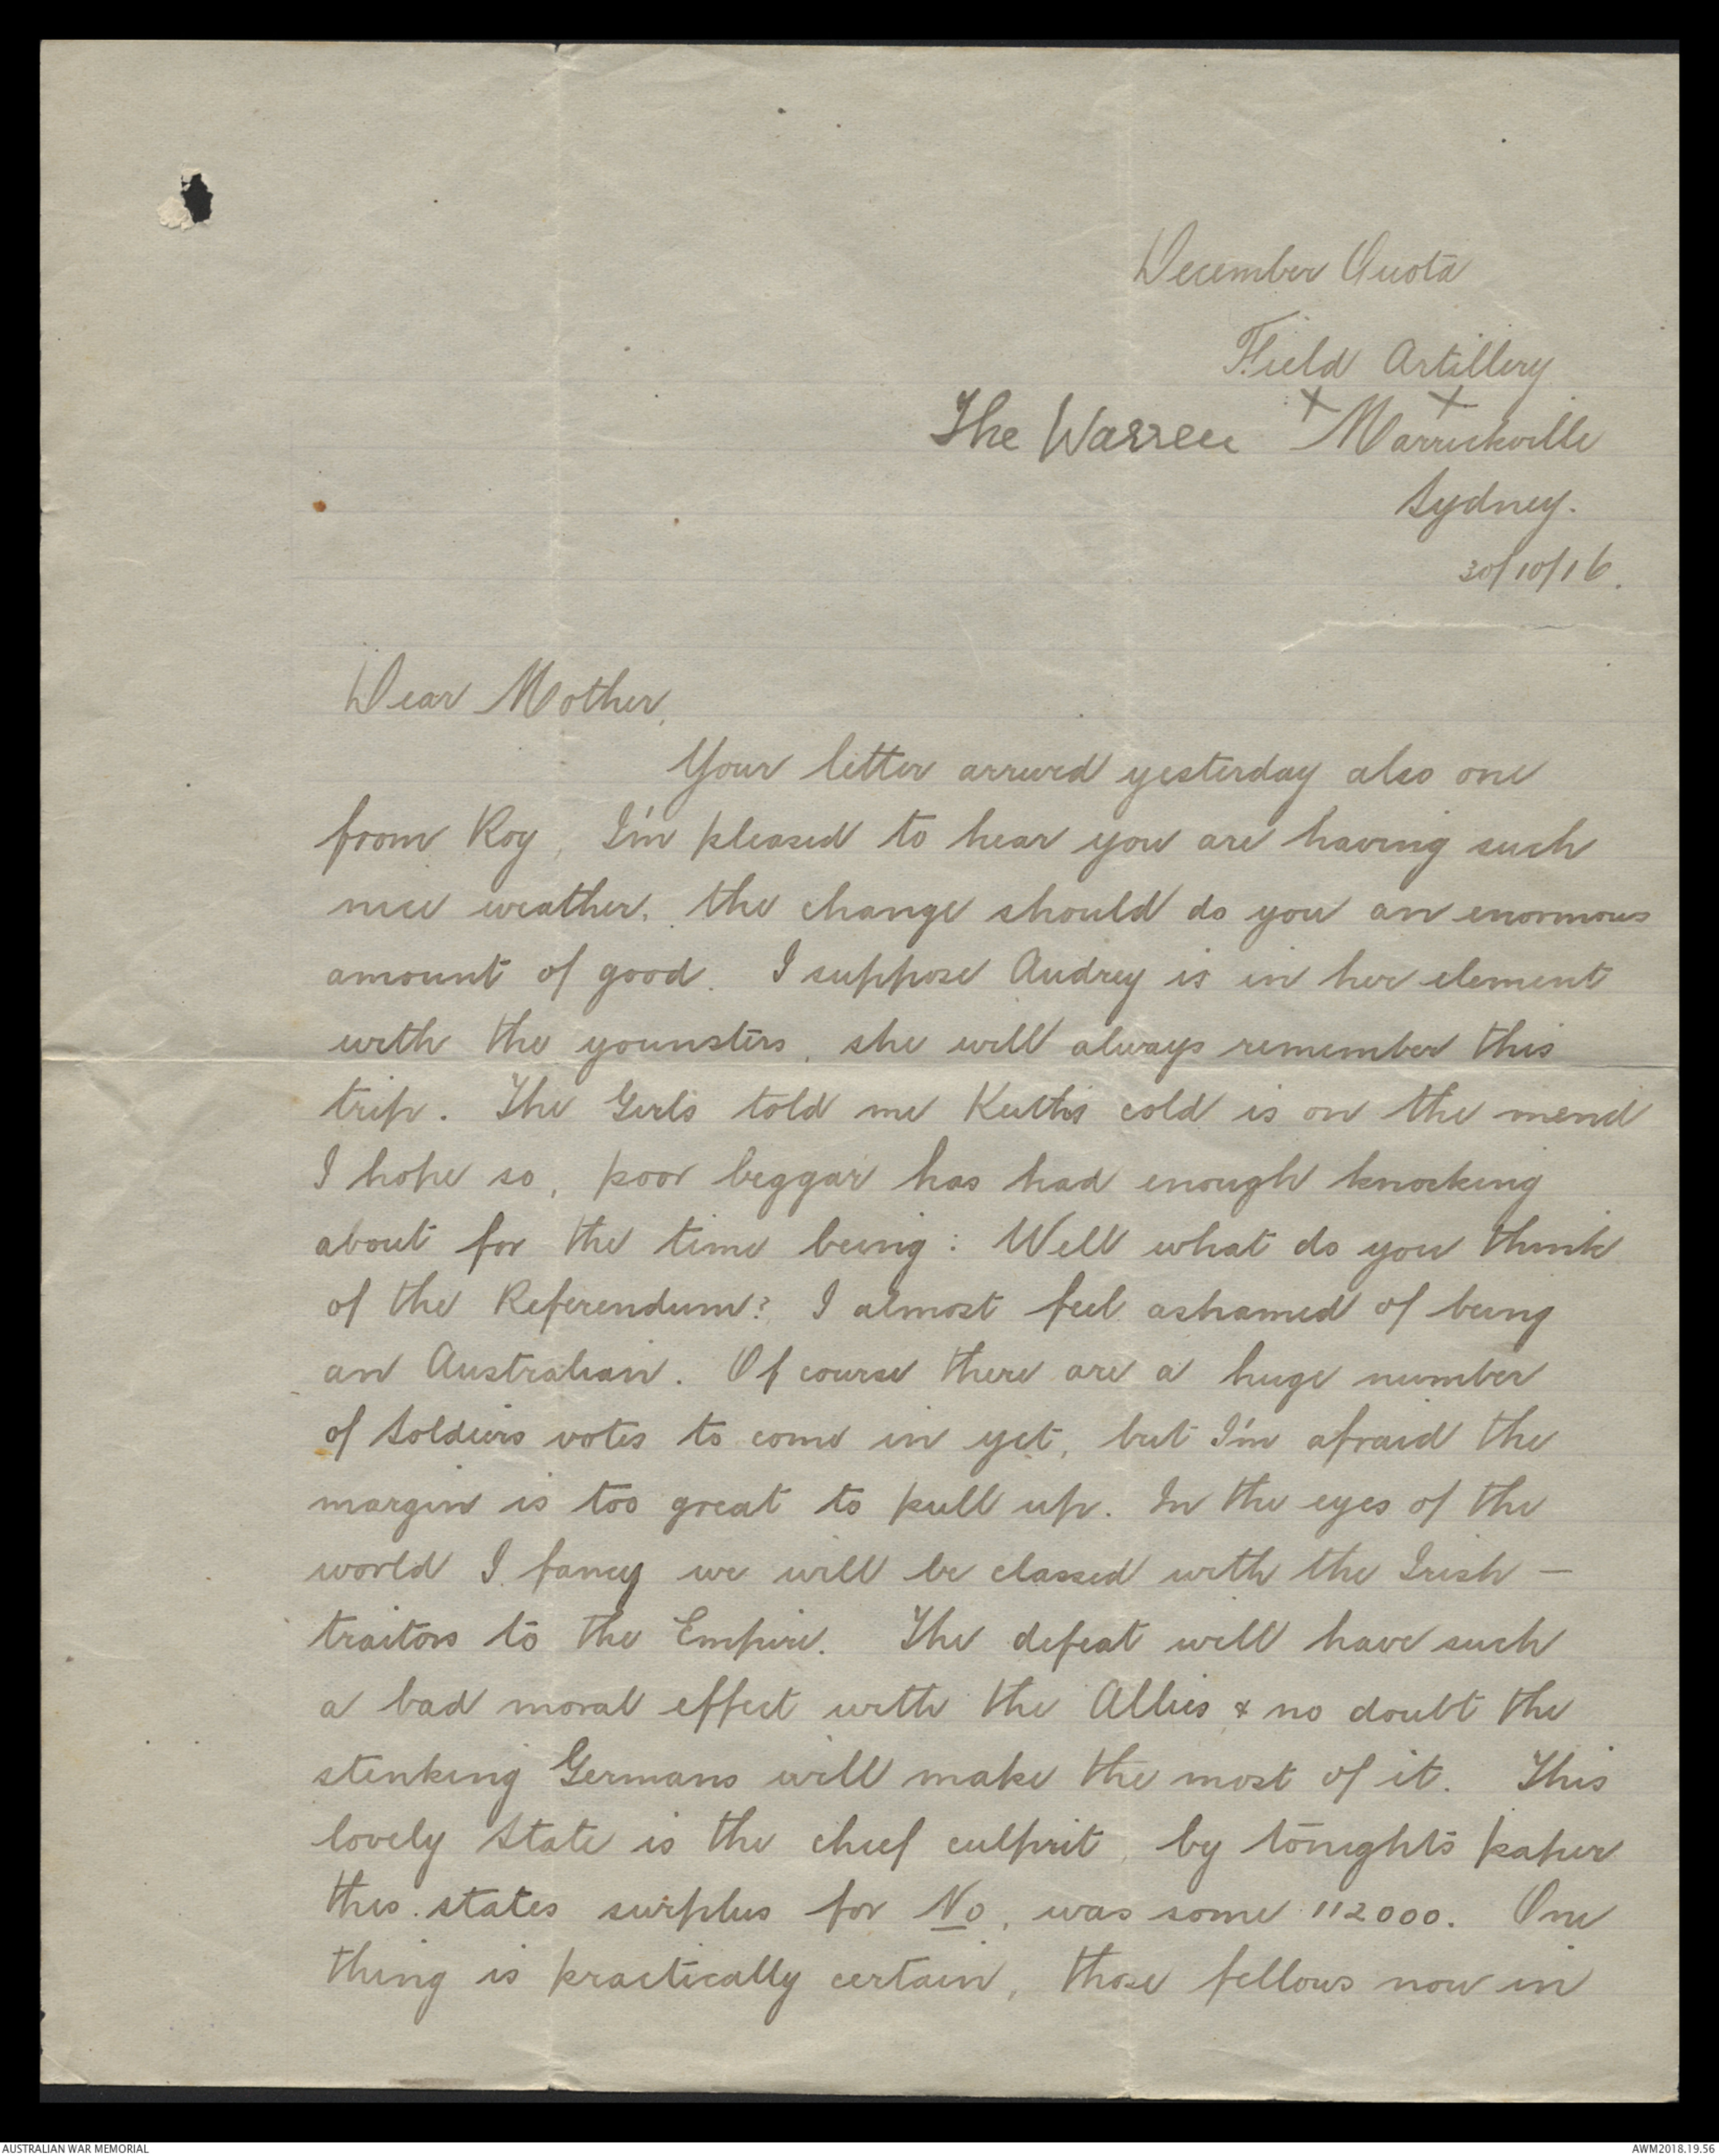 December Quota
Field Artillery
The Warren x Marrickville x
Sydney.
30/10/16.
Dear Mother,
Your letter arrived yesterday also one
from Roy, I'm pleased to hear you are having such
nice weather, the change should do you an enormous
amount of good. I suppose Audrey is in her element
with the younsters, she will always remember this
trip. The Girls told me Keith's cold is on the mend
I hope so, poor beggar has had enough knocking
about for the time being: Well what do you think
of the Referendum? I almost feel ashamed of being
an Australian. Of course there are a huge number
of Soldiers votes to come in yet, but I'm afraid the
margin is too great to pull up. In the eyes of the
world I fancy we will be classed with the Irish -
traitors to the Empire. The defeat will have such
a bad moral effect with the Allies & no doubt the
stinking Germans will make the most of it. This
lovely State is the chief culprit, by tonights paper
this states surplus for No, was some 112000. One
thing is practically certain, those fellows now in
AUSTRALIAN WAR MEMORIAL
AWM2018.19.56